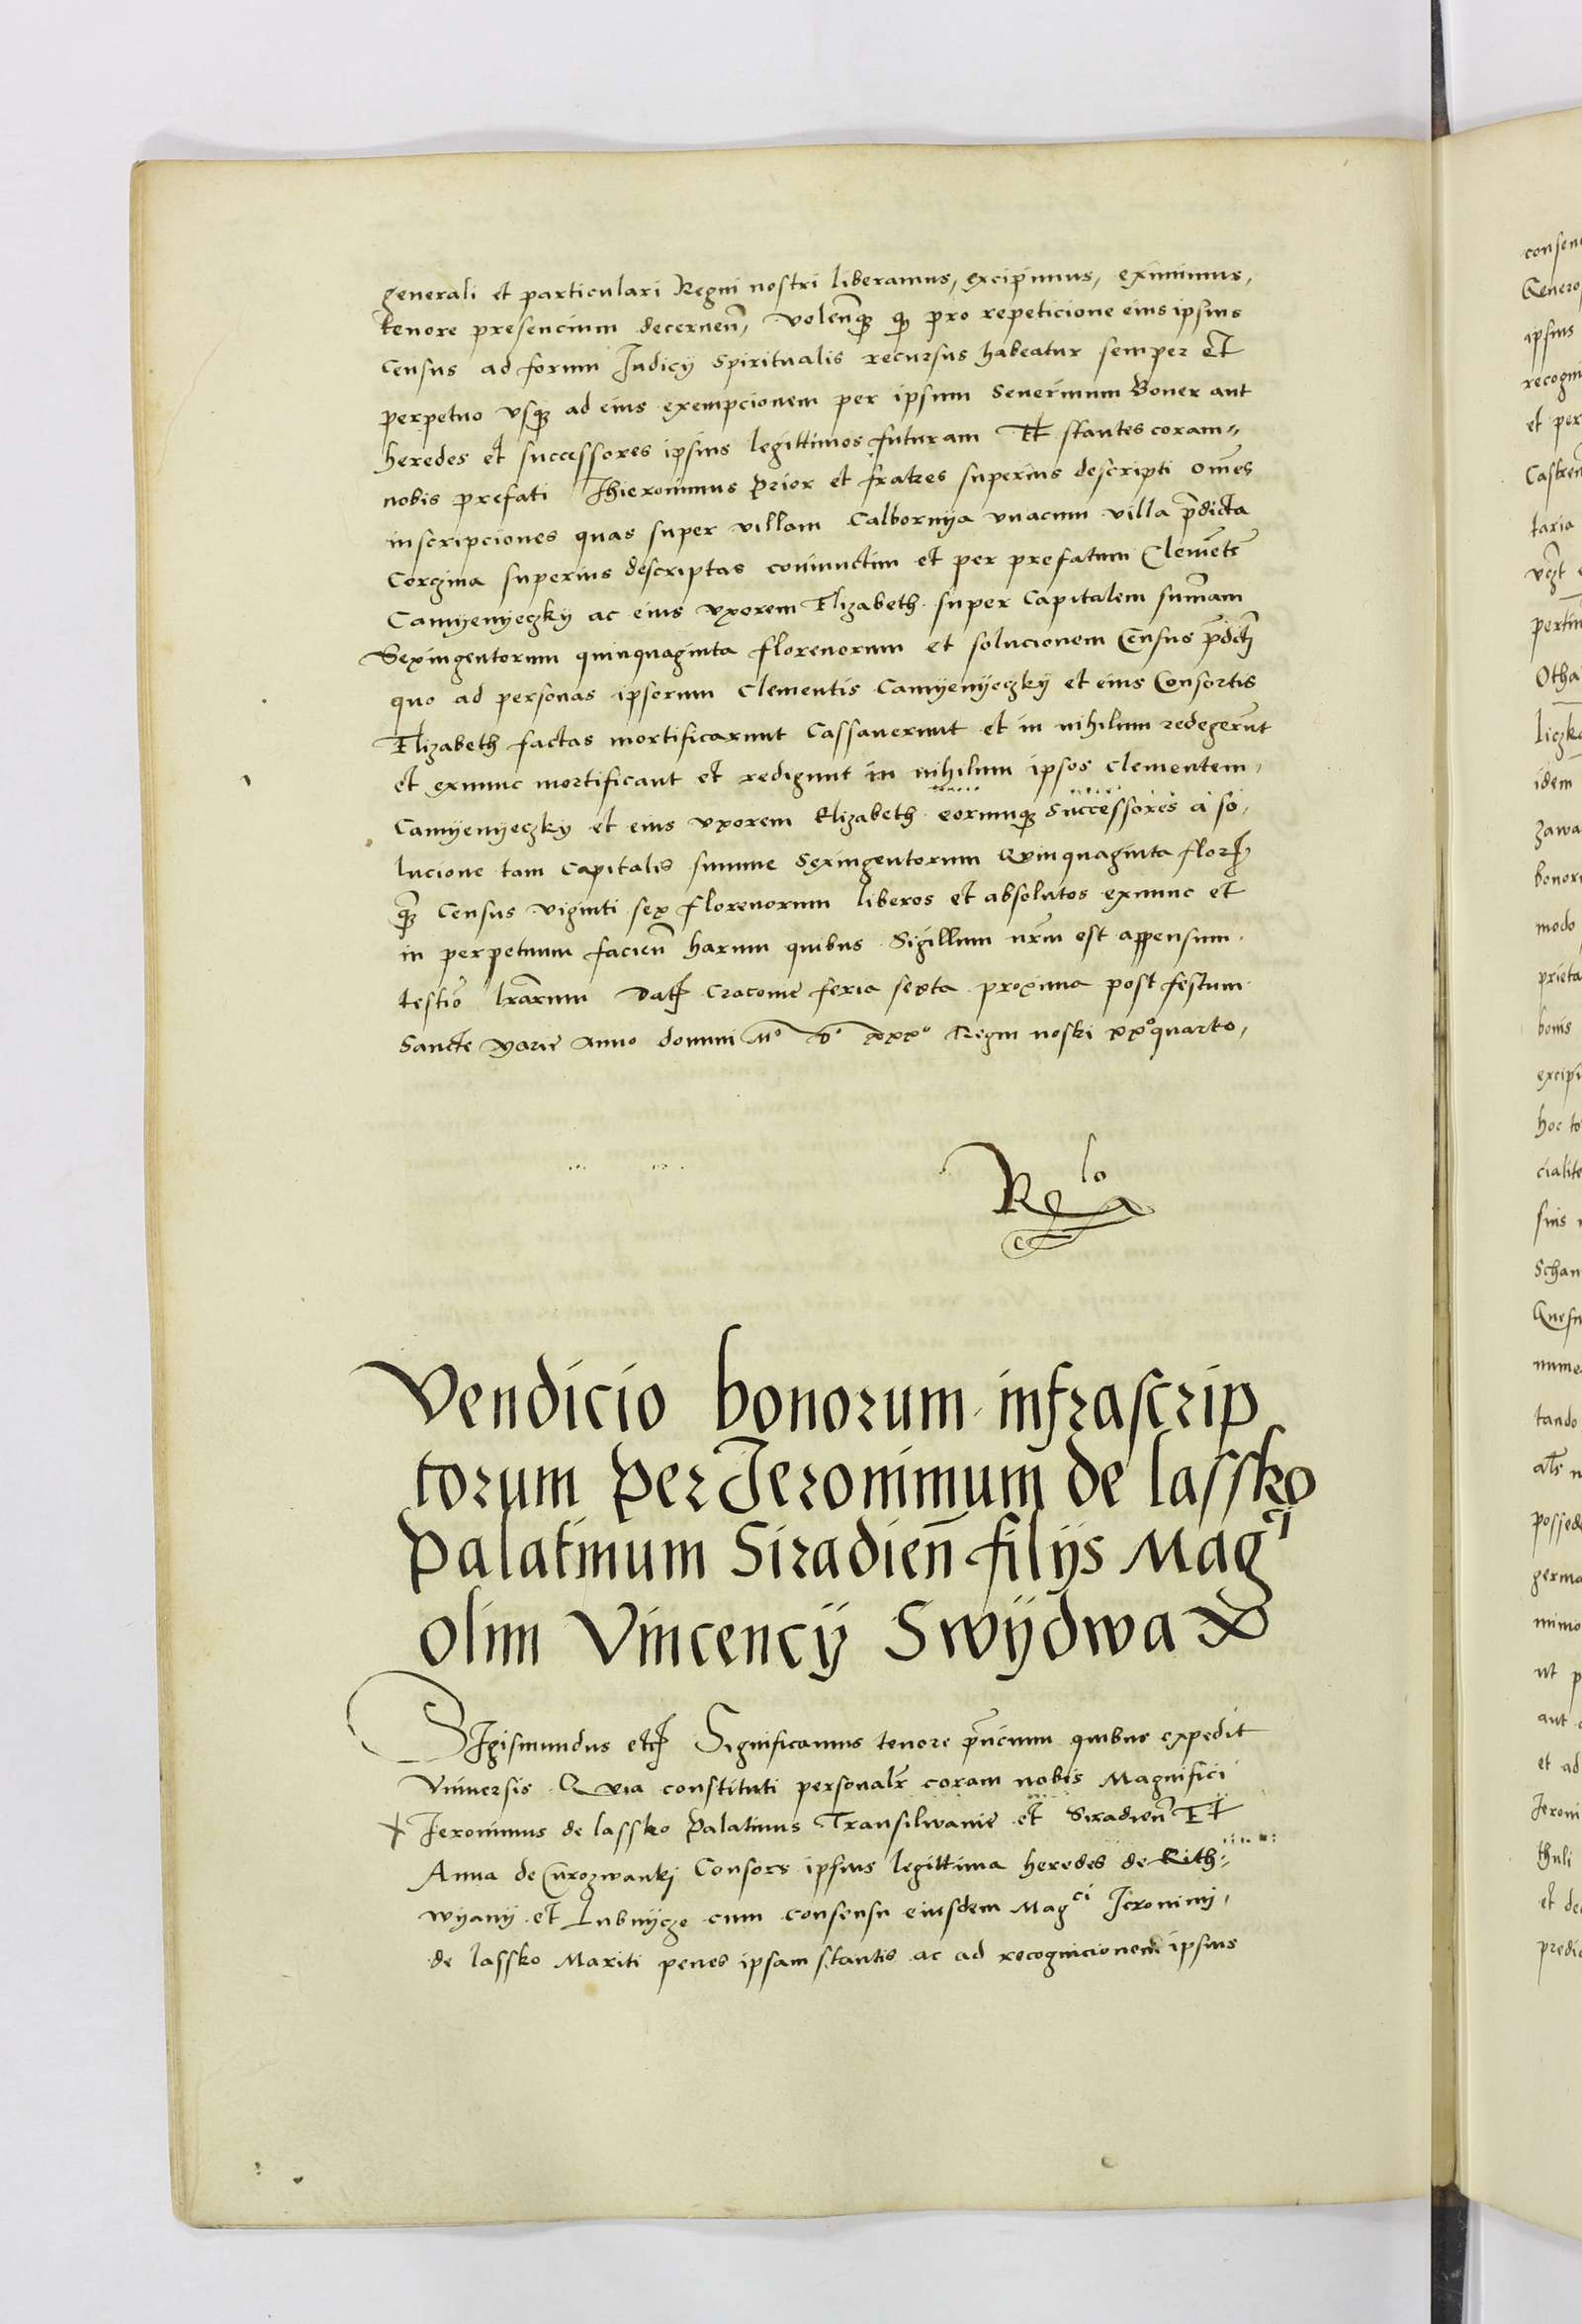 generali et particulari Regni nostri liberamus, excipimus, eximimus,
tenore presencium decernen̄, volen̄q3 q3 pro repeticione eius ipsius
Census ad forum Judicij Spiritualis recursus habeatur semper et
perpetuo vsq3 ad eius exempcionem per ipsum Severinum Boner aut
heredes et successores ipsius legittimos futuram Et stantes coram
nobis prefati Jhieronimus Prior et fratres superius descripti om̄es
inscripciones quas super villam Calbornya vnacum villa p̄dicta
Corzina superius descriptas coniunctim et per prefatum Clemēt̄
Camyenyeczky ac eius vxorem Elizabeth super Capitalem sum̄am
Sexingentorum quinquaginta florenorum et solucionem Census p̄dict̄
quo ad personas ipsorum Clementis Camyenyeczky et eius Consortis
Elizabeth factas mortificarunt Cassaverunt et in nihilum redegerūt
et exnunc mortificant et redigunt in nihilum ipsos Clementem
Camyenyeczky et eius vxorem Elizabeth eorumq3 Successores a so,
lucione tam Capitalis summe Sexingentorum Quinquaginta flor
q̄3 Census viginti sex florenorum liberos et absolutos exnunc et
in perpetuum facien̄ harum quibus Sigillum nr̄m est appensum
testio͞ lr̄arum Dat Cracovie feria sexta proxima post festum
Sancte Marie Anno domini Mo Do xxxo Regni nostri xxo quarto,
Relo
Vendicio bonorum infrascrip
torum per Jeronimum de lassko
Palatinum Siradien̄ filijs Magci
olim Vincencij Swydwa
Sigismundus etc Significamus tenore pn̄cium quibus expedit
Vniversis Quia constituti personalr̄ coram nobis Magnifici
Jeronimus de lassko Palatinus Transilwanie et Siradien̄ Et
Anna de Curozwankj Consors ipsius legittima heredes de Rith
wyany et Lubnycze cum consensu eiusdem Magci Jeronimi,
de lassko Mariti penes ipsam stantis ac ad recognicionem ipsius
ipsius
recogni
et per
taria
pertin
Otha
liczko
idem
zawa
bonor
modo
prieta
bonis
excipi
hoc to
cialite
suis
Schan
nume
tando
possed
germa
nimo
ut p
aut
et ad
Jeroni
thuli
et de
predic